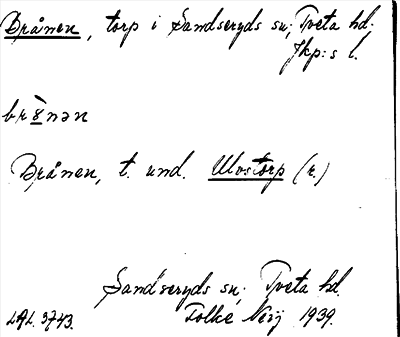 Brånen, torp i Sandseryds sn; Tveta hd.
Jkp:s l.
br8̀nən
Brånen, t. und. Ulvstorp (r.)
Sandseryds sn; Tveta hd.
LAL. 3743. Folke 1939.